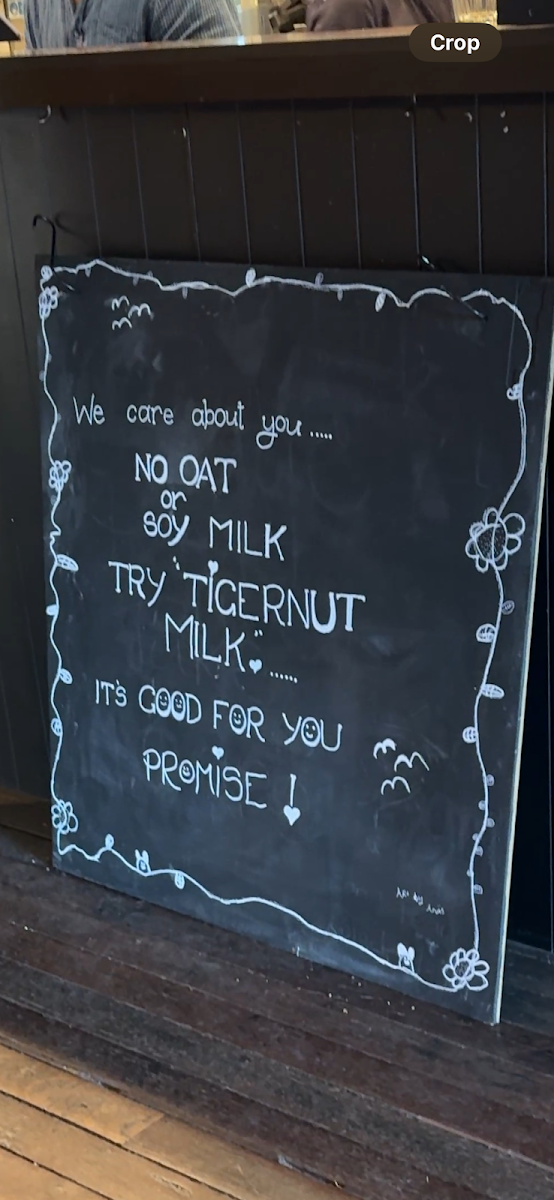 Crop
We care about you.....
NO OAT
or
SOY MILK
TRY "TIGERNUT
MILK"......
IT'S GOOD FOR YOU
PROMISE !
Art by